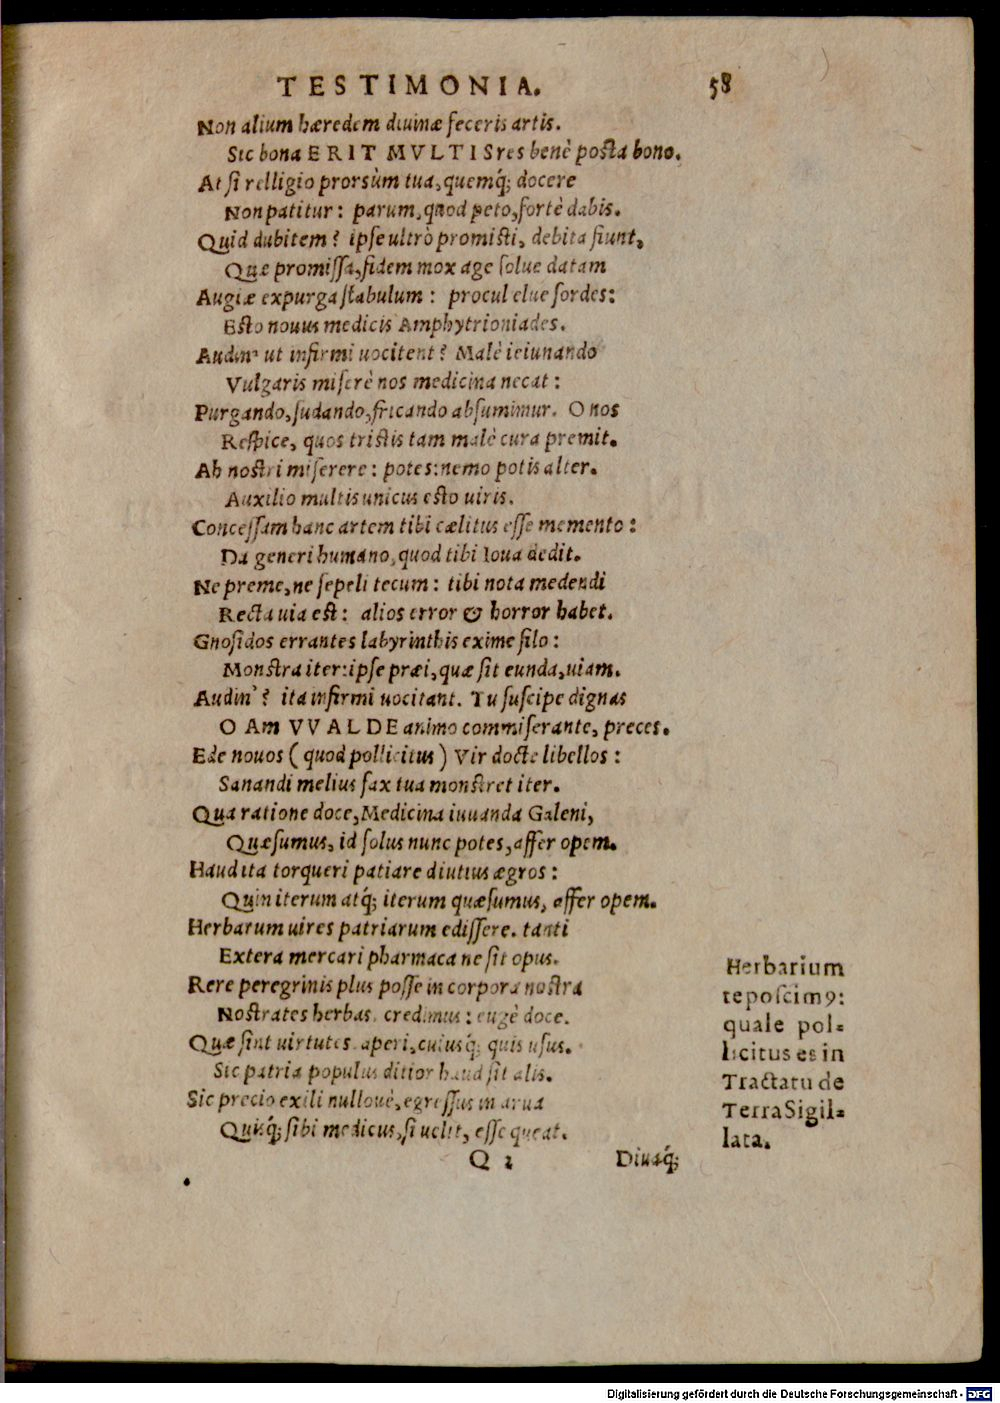 TESTIMONIA. 58
Non alium hæredem diuinæ feceris artis.
Sic bona ERIT MVLTIS res benè posta bono.
At si relligio prorsùm tua, quemq́; docere
Non patitur: parum, quod peto, fortè dabis.
Quid dubitem? ipse ultrò promisti, debita fiunt,
Quæ promissa, fidem mox age solue datam
Augiæ expurga stabulum: procul elue sordes:
Esto nouus medicis Amphytrioniades.
Audin' ut infirmi uocitent? Malè ieiunando
Vulgaris miserè nos medicina necat:
Purgando, sudando, fricando absumimur. O nos
Respice, quos tristis tam malè cura premit.
Ah nostri miserere: potes: nemo potis alter.
Auxilio multis unicus esto uiris.
Concessam hanc artem tibi cælitus esse memento:
Da generi humano, quod tibi Ioua dedit.
Ne preme, ne sepeli tecum: tibi nota medendi
Recta uia est: alios error & horror habet.
Gnosidos errantes labyrinthis exime filo:
Monstra iter: ipse præi, quæ sit eunda, uiam.
Audin'? ita infirmi uocitant. Tu suscipe dignas
O Am VVALDE animo commiserante, preces.
Ede nouos (quod pollicitus) Vir docte libellos:
Sanandi melius fax tua monstret iter.
Qua ratione doce, Medicina iuuanda Galeni,
Quæsumus, id solus nunc potes, affer opem.
Haud ita torqueri patiare diutius ægros:
Quin iterum atq́; iterum quæsumus, affer opem.
Herbarum uires patriarum edissere. tanti
Extera mercari pharmaca ne sit opus.
Rere peregrinis plus posse in corpora nostra
Nostrates herbas. credimus: eugè doce.
Quæ sint uirtutes. aperi, cuiusq́; quis usus.
Sic patria populus ditior haud sit alis.
Sic precio exili nulloué, egressus in arua
Quisq́; sibi medicus, si uelit, esse queat.
Herbarium
reposcim9:
quale pol=
licitus es in
Tractatu de
Terra Sigil=
lata.
Q 2 Diuaq́;
Digitalisierung gefördert durch die Deutsche Forschungsgemeinschaft - DFG